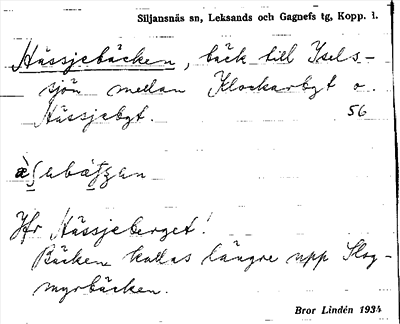 Siljansnäs sn, Leksands och Gagnefs tg, Kopp. l.
Hässjebäcken, bäck till Ysels-
sjön mellan Klockarbyt o.
Hässjebyt. 56
Jfr Hässjeberget!
Bäcken kallas längre upp Skog-
myrbäcken.
Bror Lindén 1934